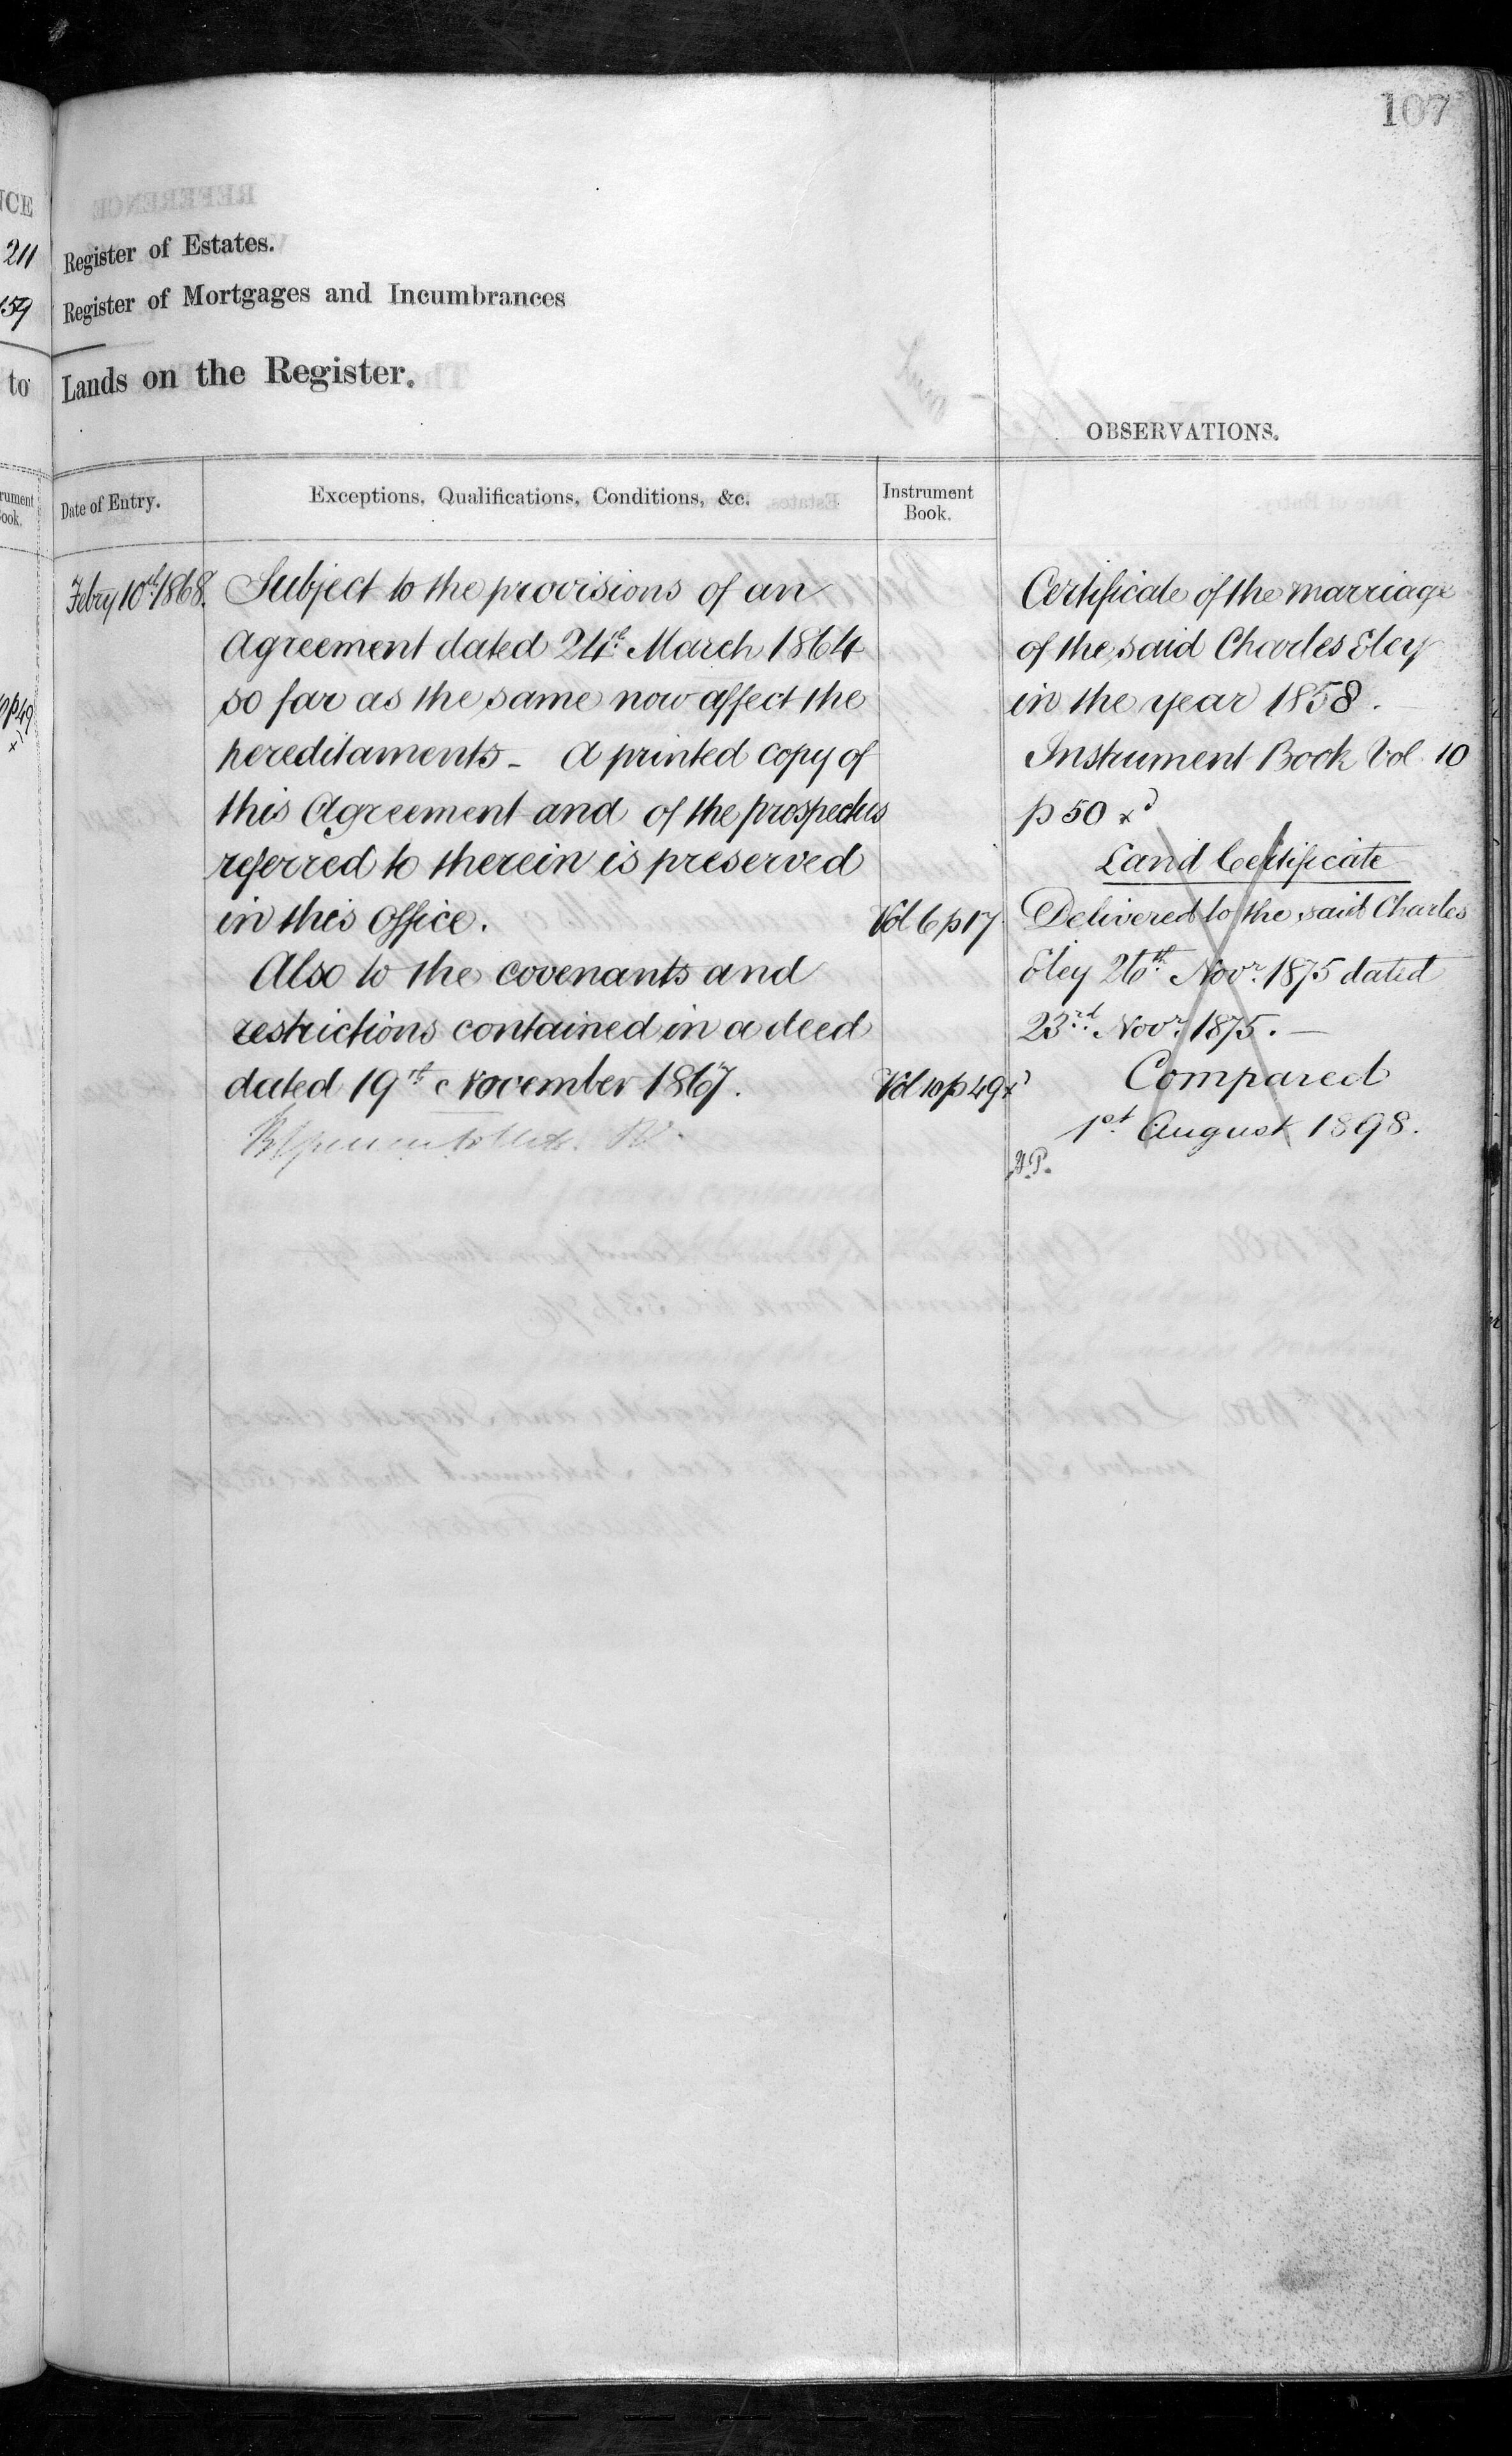 107
NCE
211
159
to
Register of Estates.
Register of Mortgages and Incumbrances
Lands on the Register.
OBSERVATIONS.
Date of Entry.
Exceptions, Qualifications, Conditions, &c.
Instrument
Book.
Febry 10th 1868.
Subject to the provisions of an
Agreement dated 24th March 1864
so far as the same now affect the
hereditaments - A printed copy of
this Agreement and of the prospectus
referred to therein is preserved
in this Office.
Vol 6 p 17
Also to the covenants and
restrictions contained in a deed
dated 19th November 1867.
Vol 10 p 49 x
Certificate of the marriage
of the said Charles Eley
in the year 1858.
Instrument Book Vol. 10
p 50 x
Land Certificate
Delivered to the said Charles
Eley 26th Novr. 1875 dated
23rd Novr. 1875. —
Compared
1st August 1898.